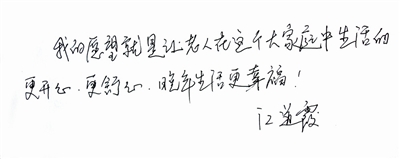 我的愿望就是让老人在这个大家庭中生活的
更开心、更舒心、晚年生活更幸福！
江道霞